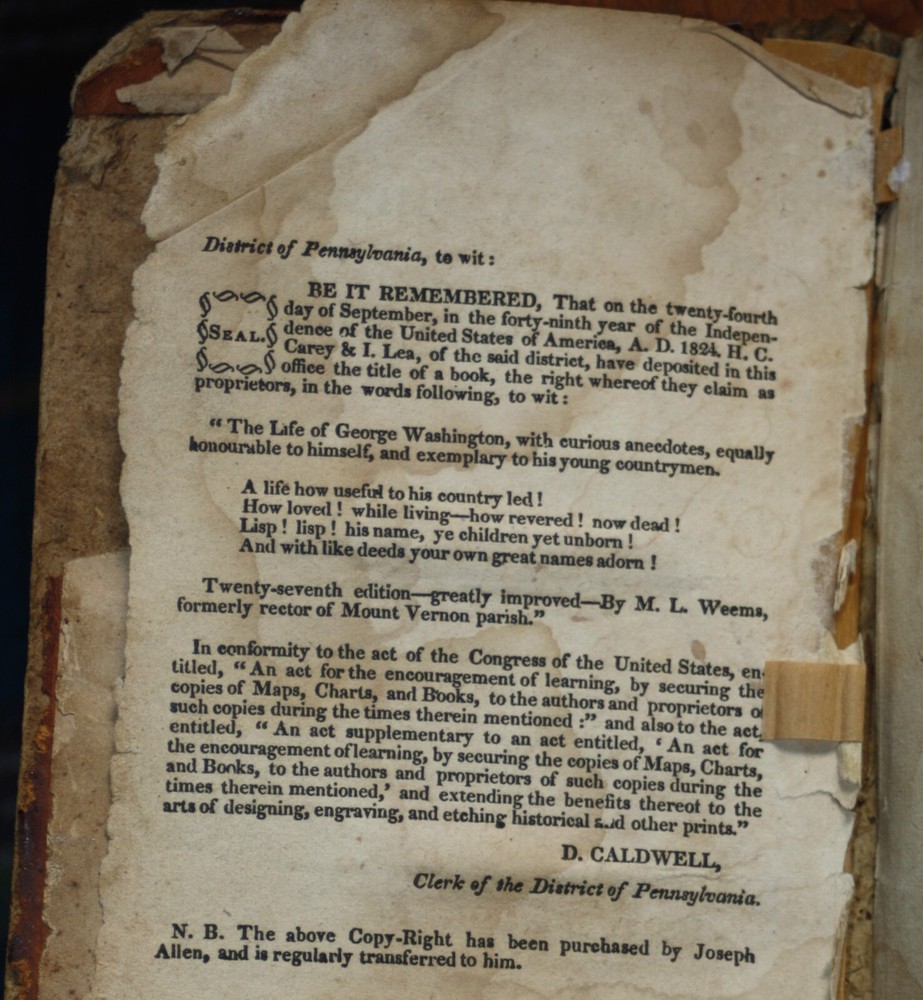 District of Pennsylvania, to wit:
BE IT REMEMBERED, That on the twenty-fourth
day of September, in the forty-ninth year of the Indepen-
SEAL. dence of the United States of America, A. D. 1824. H. C.
Carey & I. Lea, of the said district, have deposited in this
office the title of a book, the right whereof they claim as
proprietors, in the words following, to wit:
“ The Life of George Washington, with curious anecdotes, equally
honourable to himself, and exemplary to his young countrymen.
A life how useful to his country led!
How loved! while living—how revered! now dead!
Lisp! lisp! his name, ye children yet unborn!
And with like deeds your own great names adorn!
Twenty-seventh edition—greatly improved—By M. L. Weems,
formerly rector of Mount Vernon parish.”
In conformity to the act of the Congress of the United States, en-
titled, “An act for the encouragement of learning, by securing the
copies of Maps, Charts, and Books, to the authors and proprietors o
such copies during the times therein mentioned :” and also to the act,
entitled, “ An act supplementary to an act entitled, ‘ An act for
the encouragement of learning, by securing the copies of Maps, Charts,
and Books, to the authors and proprietors of such copies during the
times therein mentioned,’ and extending the benefits thereof to the
arts of designing, engraving, and etching historical and other prints.”
D. CALDWELL,
Clerk of the District of Pennsylvania.
N. B. The above Copy-Right has been purchased by Joseph
Allen, and is regularly transferred to him.